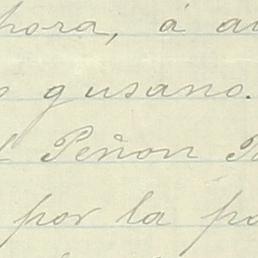 hora, á
gusano.
Peñon
por la po